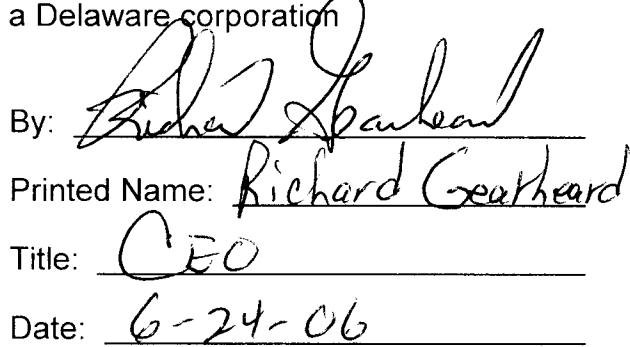 a Delaware corporation
By: Richard Gearheard
Printed Name: Richard Gearheard
Title: CEO
Date: 6-24-06